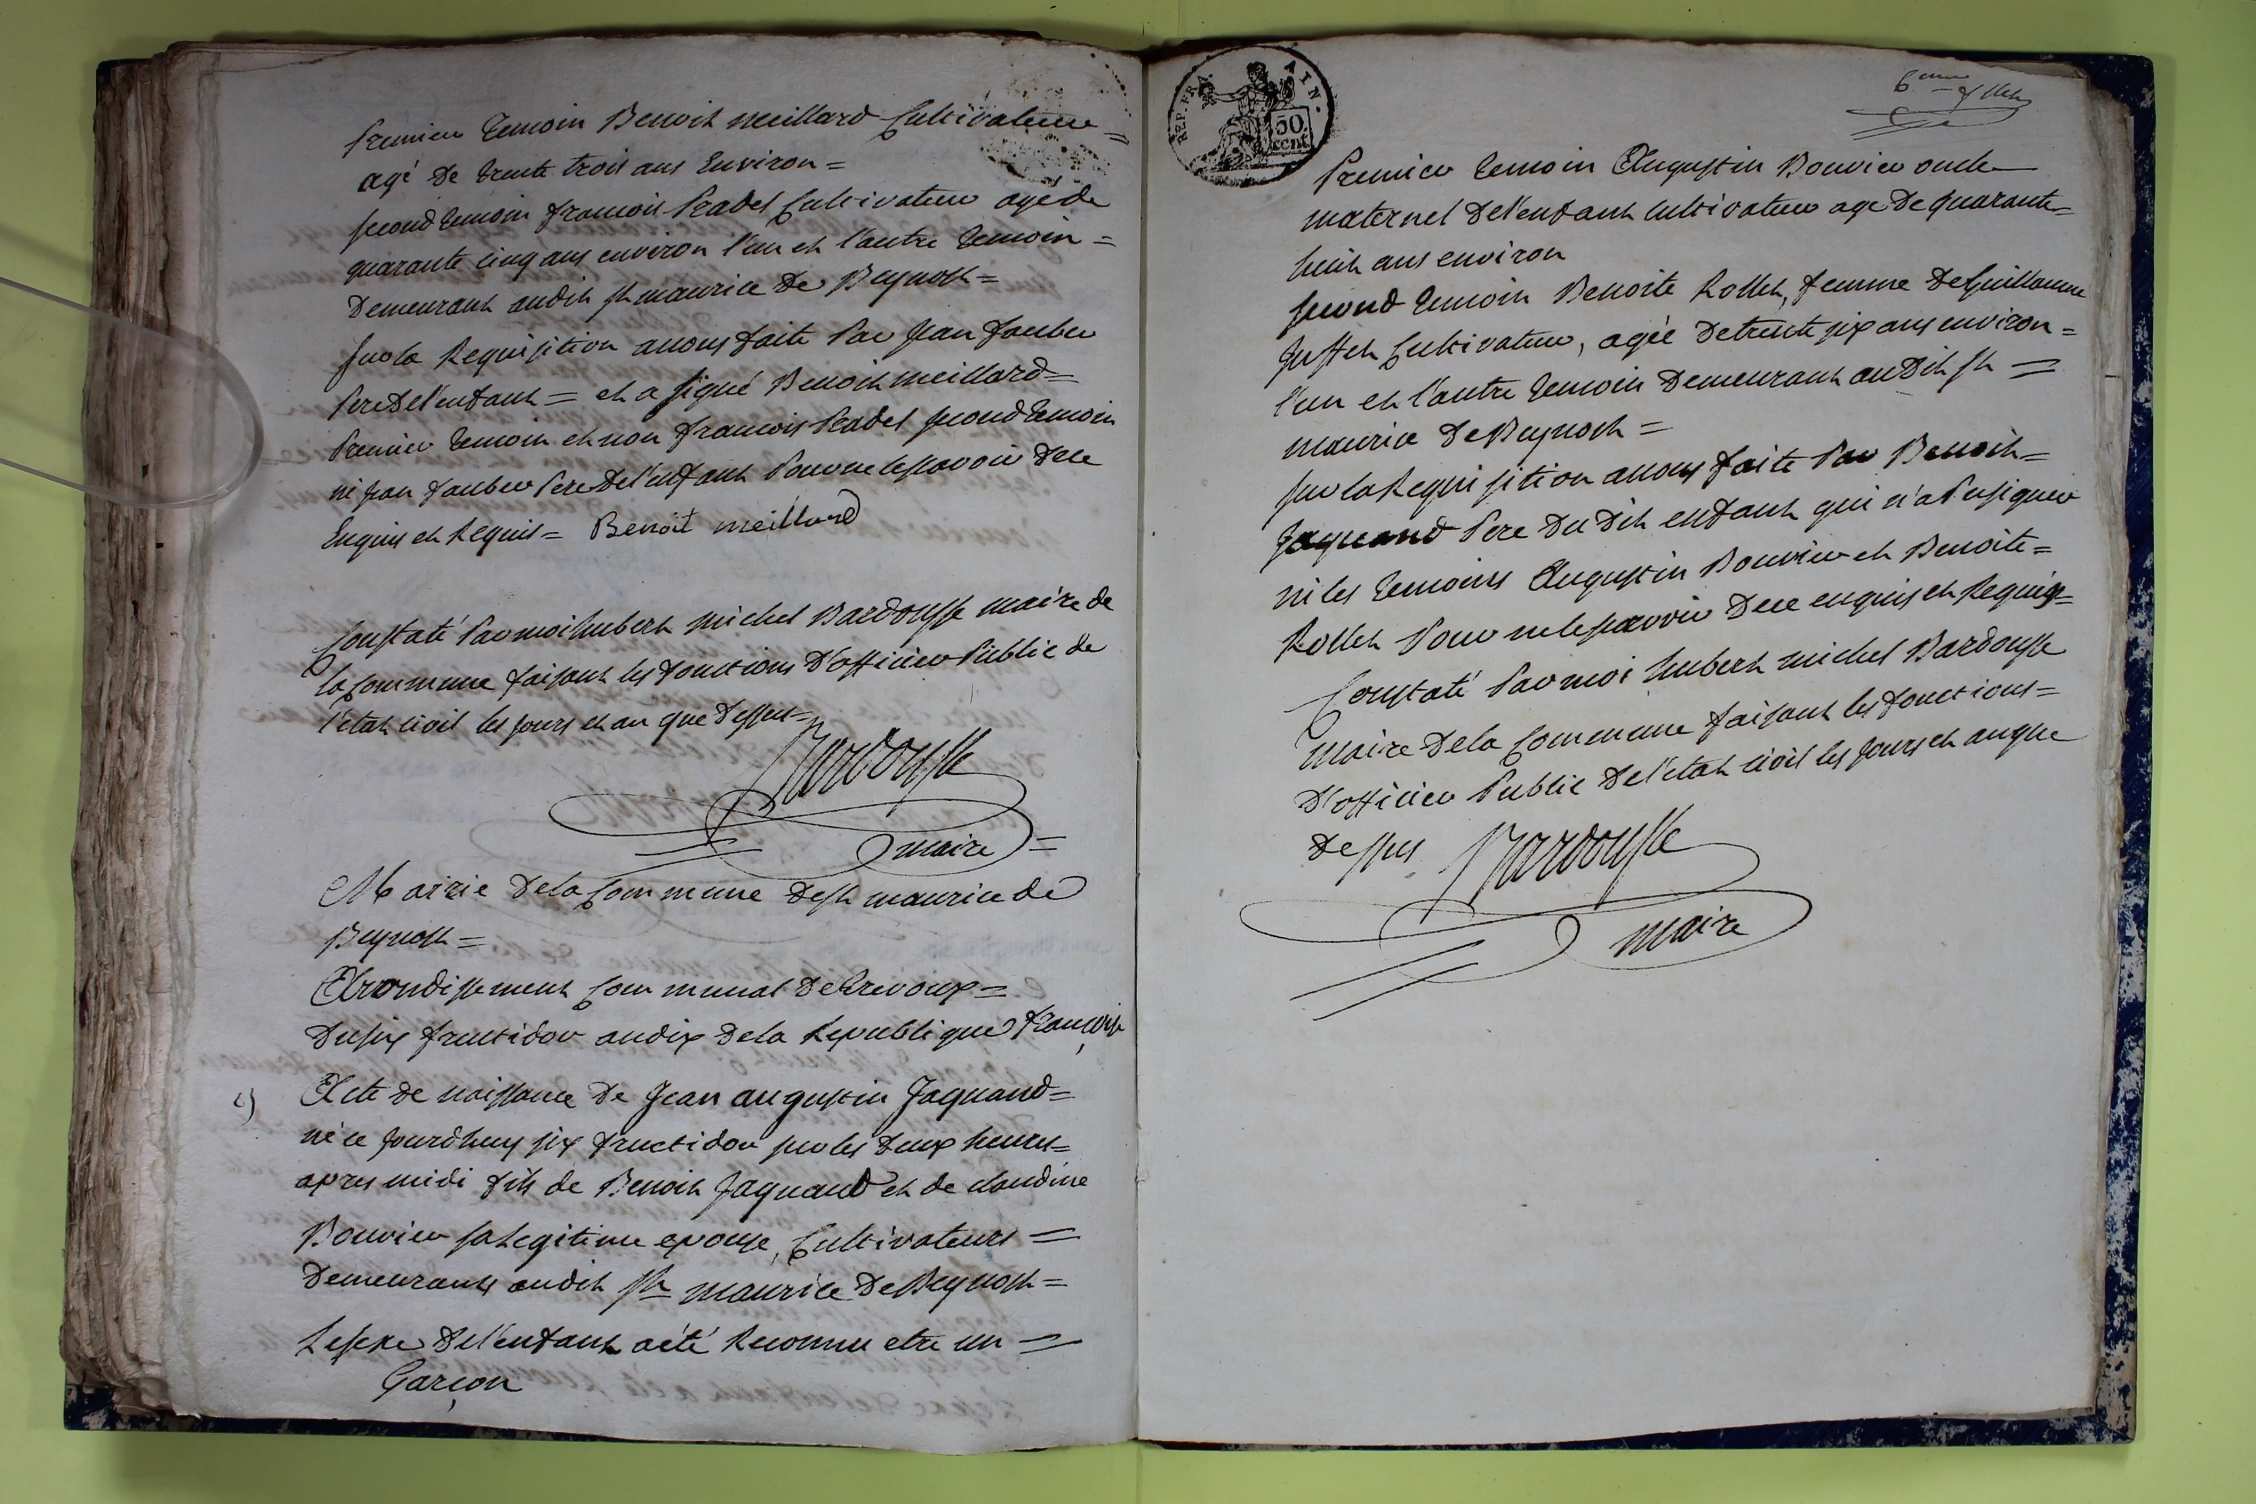 Premier temoin Benoit meillard Cultivateur =
agé de trente trois ans Environ =
second temoin francois Pradel Cultivateur agé de
quarante cinq ans environ l'un et l'autre temoin =
Demeurant audit st maurice de Beynost =
sur la Requisition anous faite Par Jean fauber
Pere de l'enfant = et a signé Benoit meillard =
Premier temoin et non francois Pradel second temoin
ni jean fauber Pere de l'enfant Pour ne le scavoir de ce
Enquis et Requis = Benoit meillard
Constaté Par moi hubert michel Bardousse maire de
la Commune faisant les fonctions d'officier Public de
l'etat civil les jours et an que dessus =
Bardousse
maire =
Mairie de la Commune de st maurice de
Beynost =
Arondissement Communal de trevoux =
du six fructidor an dix de la Republique française
Acte de naissance de Jean augustin Jaquand =
né ce jourdhuy six fructidor sur les deux heures =
apres midi fils de Benoit Jaquand et de claudine
Bouvier sa Legitime epouse, Cultivateurs =
Demeurants audit st maurice de Beynost =
Le sexe de l'enfant a été Reconnu etre un =
Garçon
REP. FRA. AIN.
50 cent
6eme
Premier temoin Augustin Bouvier oncle
maternel de l'enfant cultivateur age de quarante =
huit ans environ
second temoin Benoite Rollet, femme de guillaume
Cultivateur, agée de trente six ans environ =
l'un et l'autre temoin Demeurant au dit st =
maurice de Beynost =
sur la Requisition anous faite Par Benoit =
Jaquand Pere du dit enfant qui n'a Pu signer
ni les temoins Augustin Bouvier et Benoite =
Rollet Pour ne le scavoir de ce enquis et Requis =
Constaté Par moi hubert michel Bardousse
maire de la Commune faisant les fonctions =
d'officier Public de l'etat civil les jours et an que
dessus Bardousse
maire